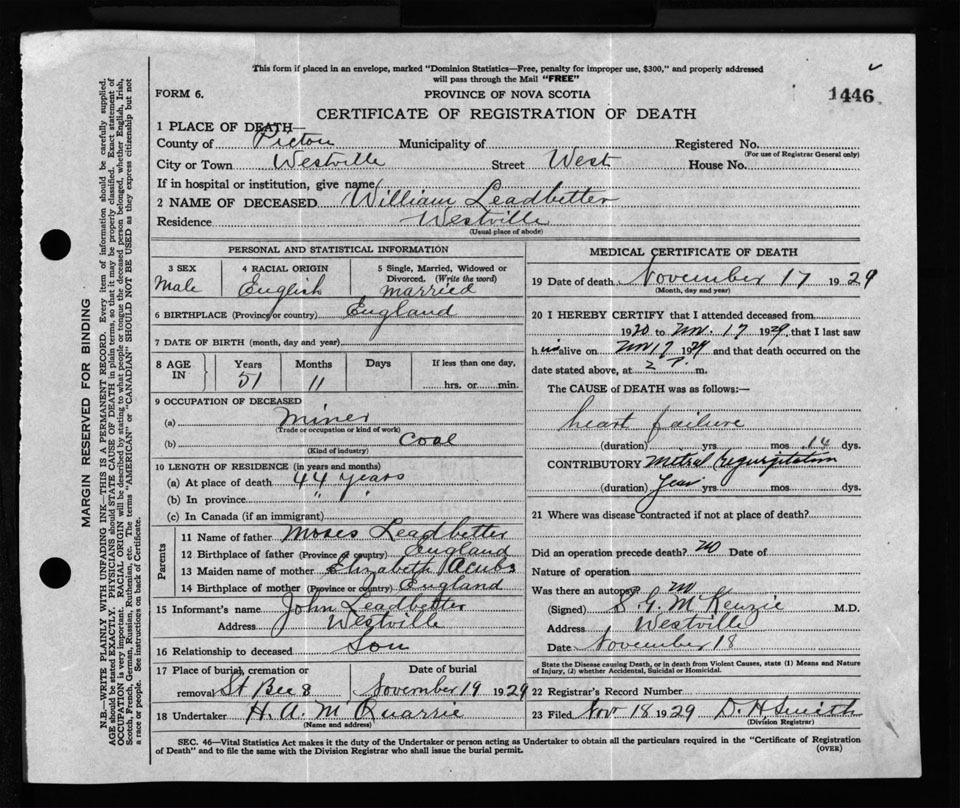 This form if placed in an envelope, marked "Dominion Statistics—Free, penalty for improper use, $300," and properly addressed
will pass through the Mail "FREE"
FORM 6.
PROVINCE OF NOVA SCOTIA
1446
CERTIFICATE OF REGISTRATION OF DEATH
1 PLACE OF DEATH—
County of Pictou Municipality of Registered No.
(For use of Registrar General only)
City or Town Westville Street West House No.
If in hospital or institution, give name
2 NAME OF DECEASED William Leadbetter
Residence Westville
(Usual place of abode)
PERSONAL AND STATISTICAL INFORMATION
3 SEX
Male
4 RACIAL ORIGIN
English
5 Single, Married, Widowed or
Divorced. (Write the word)
married
6 BIRTHPLACE (Province or country) England
7 DATE OF BIRTH (month, day and year)
8 AGE IN
Years Months Days If less than one day,
51 11 hrs. or min.
9 OCCUPATION OF DECEASED
(a) miner
(Trade or occupation or kind of work)
(b) coal
(Kind of industry)
10 LENGTH OF RESIDENCE (in years and months)
(a) At place of death 44 years
(b) In province " "
(c) In Canada (if an immigrant)
Parents
11 Name of father Moses Leadbetter
12 Birthplace of father (Province or country) England
13 Maiden name of mother Elizabeth Jacubs
14 Birthplace of mother (Province or country) England
15 Informant's name John Leadbetter
Address Westville
16 Relationship to deceased Son
17 Place of burial, cremation or Date of burial
removal St Bees November 19 1929
18 Undertaker H. A. McQuarrie
(Name and address)
MEDICAL CERTIFICATE OF DEATH
19 Date of death November 17 1929
(Month, day and year)
20 I HEREBY CERTIFY that I attended deceased from
1920 to Nov. 17 1929, that I last saw
him alive on Nov 17 1929 and that death occurred on the
date stated above, at 2 P. m.
The CAUSE of DEATH was as follows:—
heart failure
(duration) yrs mos 14 dys.
CONTRIBUTORY Mitral Regurgitation
(duration) Years yrs mos dys.
21 Where was disease contracted if not at place of death?
Did an operation precede death? no Date of
Nature of operation
Was there an autopsy? no
(Signed) S G McKenzie M.D.
Address Westville
Date November 18
State the Disease causing Death, or in death from Violent Causes, state (1) Means and Nature
of Injury, (2) whether Accidental, Suicidal or Homicidal.
22 Registrar's Record Number
23 Filed Nov 18 1929 D. H. Smith
(Division Registrar)
SEC. 46—Vital Statistics Act makes it the duty of the Undertaker or person acting as Undertaker to obtain all the particulars required in the "Certificate of Registration
of Death" and to file the same with the Division Registrar who shall issue the burial permit.
(OVER)
MARGIN RESERVED FOR BINDING
N.B.—WRITE PLAINLY WITH UNFADING INK—THIS IS A PERMANENT RECORD. Every item of information should be carefully supplied.
AGE should be stated EXACTLY. PHYSICIANS should STATE CAUSE OF DEATH in plain terms, so that it may be properly classified. Exact statement of
OCCUPATION is very important. RACIAL ORIGIN will be described by stating to what people or tongue the deceased person belonged, whether English, Irish,
Scotch, French, German, Russian, Ruthenian, etc. The terms "AMERICAN" or "CANADIAN" SHOULD NOT BE USED as they express citizenship but not
a race or people. See instructions on back of Certificate.